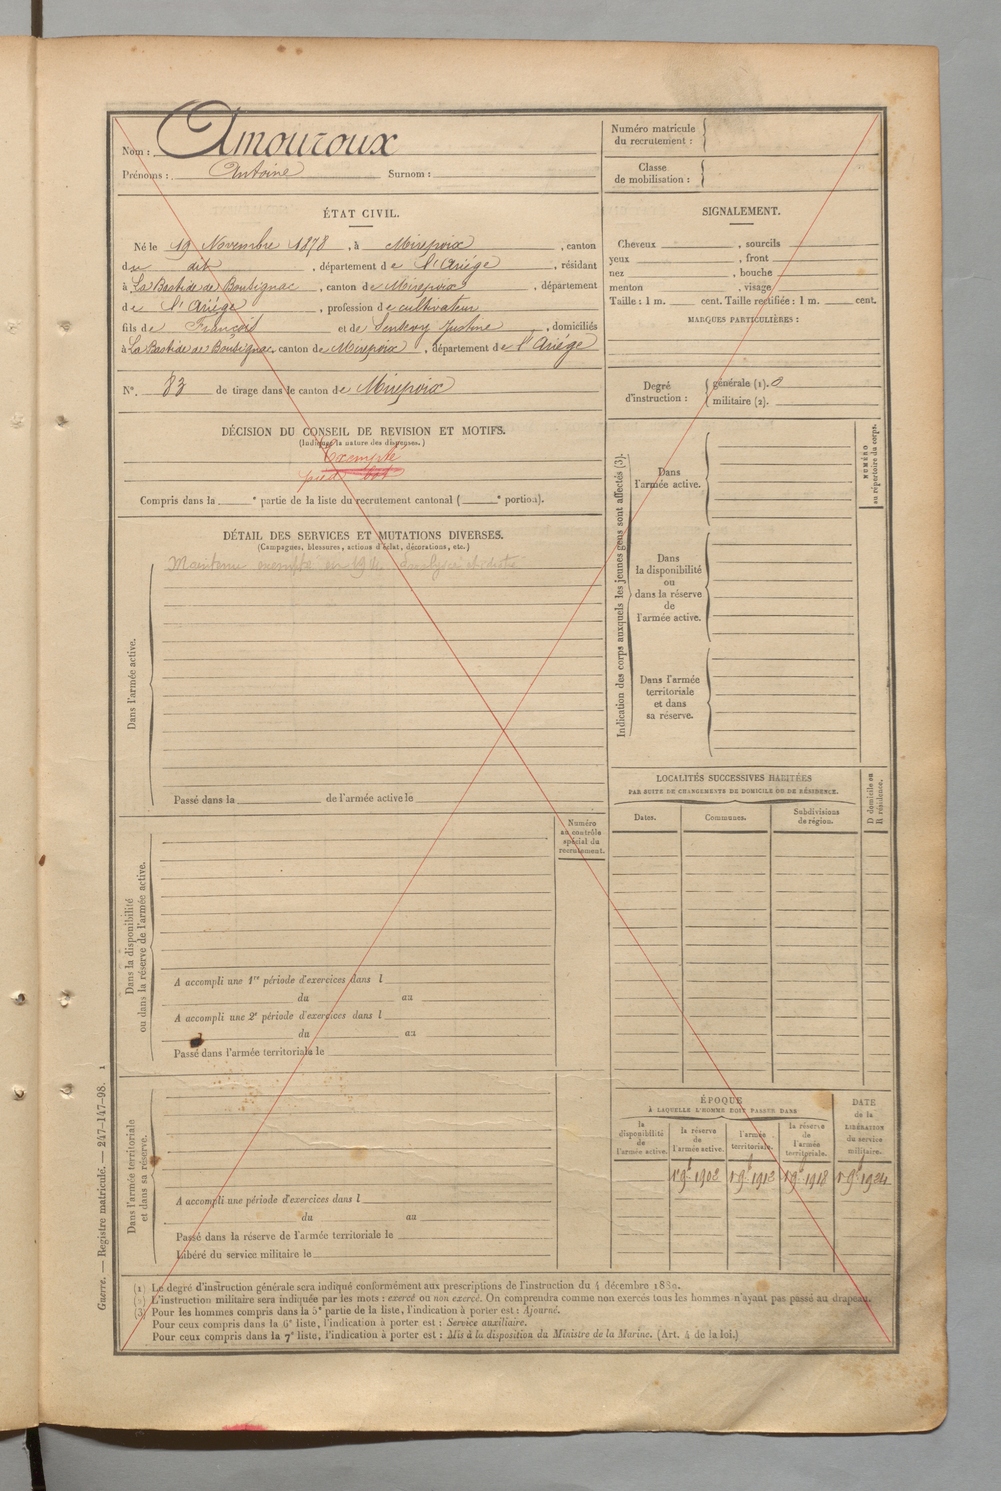 Nom : Amouroux
Prénoms : Antoine Surnom :
Numéro matricule
du recrutement :
Classe
de mobilisation :
ÉTAT CIVIL.
Né le 19 Novembre 1878, à Mirepoix, canton
du dit, département de l'Ariége, résidant
à La Bastide de Bousignac, canton de Mirepoix, département
de l'Ariége, profession de cultivateur
fils de François et de Senterry Justine, domiciliés
à La Bastide de Bousignac, canton de Mirepoix, département de l'Ariége
N°. 83 de tirage dans le canton de Mirepoix
SIGNALEMENT.
Cheveux , sourcils
yeux , front
nez , bouche
menton , visage
Taille : 1 m. cent. Taille rectifiée : 1 m. cent.
MARQUES PARTICULIÈRES :
Degré
d'instruction :
générale (1). 0
militaire (2).
DÉCISION DU CONSEIL DE REVISION ET MOTIFS.
(Indiquer la nature des dispenses.)
Exempté
pied bot
Compris dans la e partie de la liste du recrutement cantonal ( e portion).
DÉTAIL DES SERVICES ET MUTATIONS DIVERSES.
(Campagnes, blessures, actions d'éclat, décorations, etc.)
Maintenu exempté en 1914
Dans l'armée active.
Passé dans la de l'armée active le
Indication des corps auxquels les jeunes gens sont affectés (3).
Dans
l'armée active.
Dans
la disponibilité
ou
dans la réserve
de
l'armée active.
Dans l'armée
territoriale
et dans
sa réserve.
NUMÉRO
au répertoire du corps.
LOCALITÉS SUCCESSIVES HABITÉES
PAR SUITE DE CHANGEMENTS DE DOMICILE OU DE RÉSIDENCE.
Dates. Communes. Subdivisions
de région.
D domicile ou
R résidence.
Numéro
au contrôle
spécial du
recrutement.
Dans la disponibilité
ou dans la réserve de l'armée active.
A accompli une 1re période d'exercices dans l
du au
A accompli une 2e période d'exercices dans l
du au
Passé dans l'armée territoriale le
Dans l'armée territoriale
et dans sa réserve.
A accompli une période d'exercices dans l
du au
Passé dans la réserve de l'armée territoriale le
Libéré du service militaire le
ÉPOQUE
À LAQUELLE L'HOMME DOIT PASSER DANS
la
disponibilité
de
l'armée active.
la réserve
de
l'armée active.
l'armée
territoriale.
la réserve
de
l'armée
territoriale.
DATE
de la
LIBÉRATION
du service
militaire.
1er 9bre 1902 1er 9bre 1912 1er 9bre 1918 1er 9bre 1924
(1) Le degré d'instruction générale sera indiqué conformément aux prescriptions de l'instruction du 4 décembre 1889.
(2) L'instruction militaire sera indiquée par les mots : exercé ou non exercé. On comprendra comme non exercés tous les hommes n'ayant pas passé au drapeau.
(3) Pour les hommes compris dans la 5e partie de la liste, l'indication à porter est : Ajourné.
Pour ceux compris dans la 6e liste, l'indication à porter est : Service auxiliaire.
Pour ceux compris dans la 7e liste, l'indication à porter est : Mis à la disposition du Ministre de la Marine. (Art. 4 de la loi.)
Guerre. — Registre matricule. — 247-147-98. 1